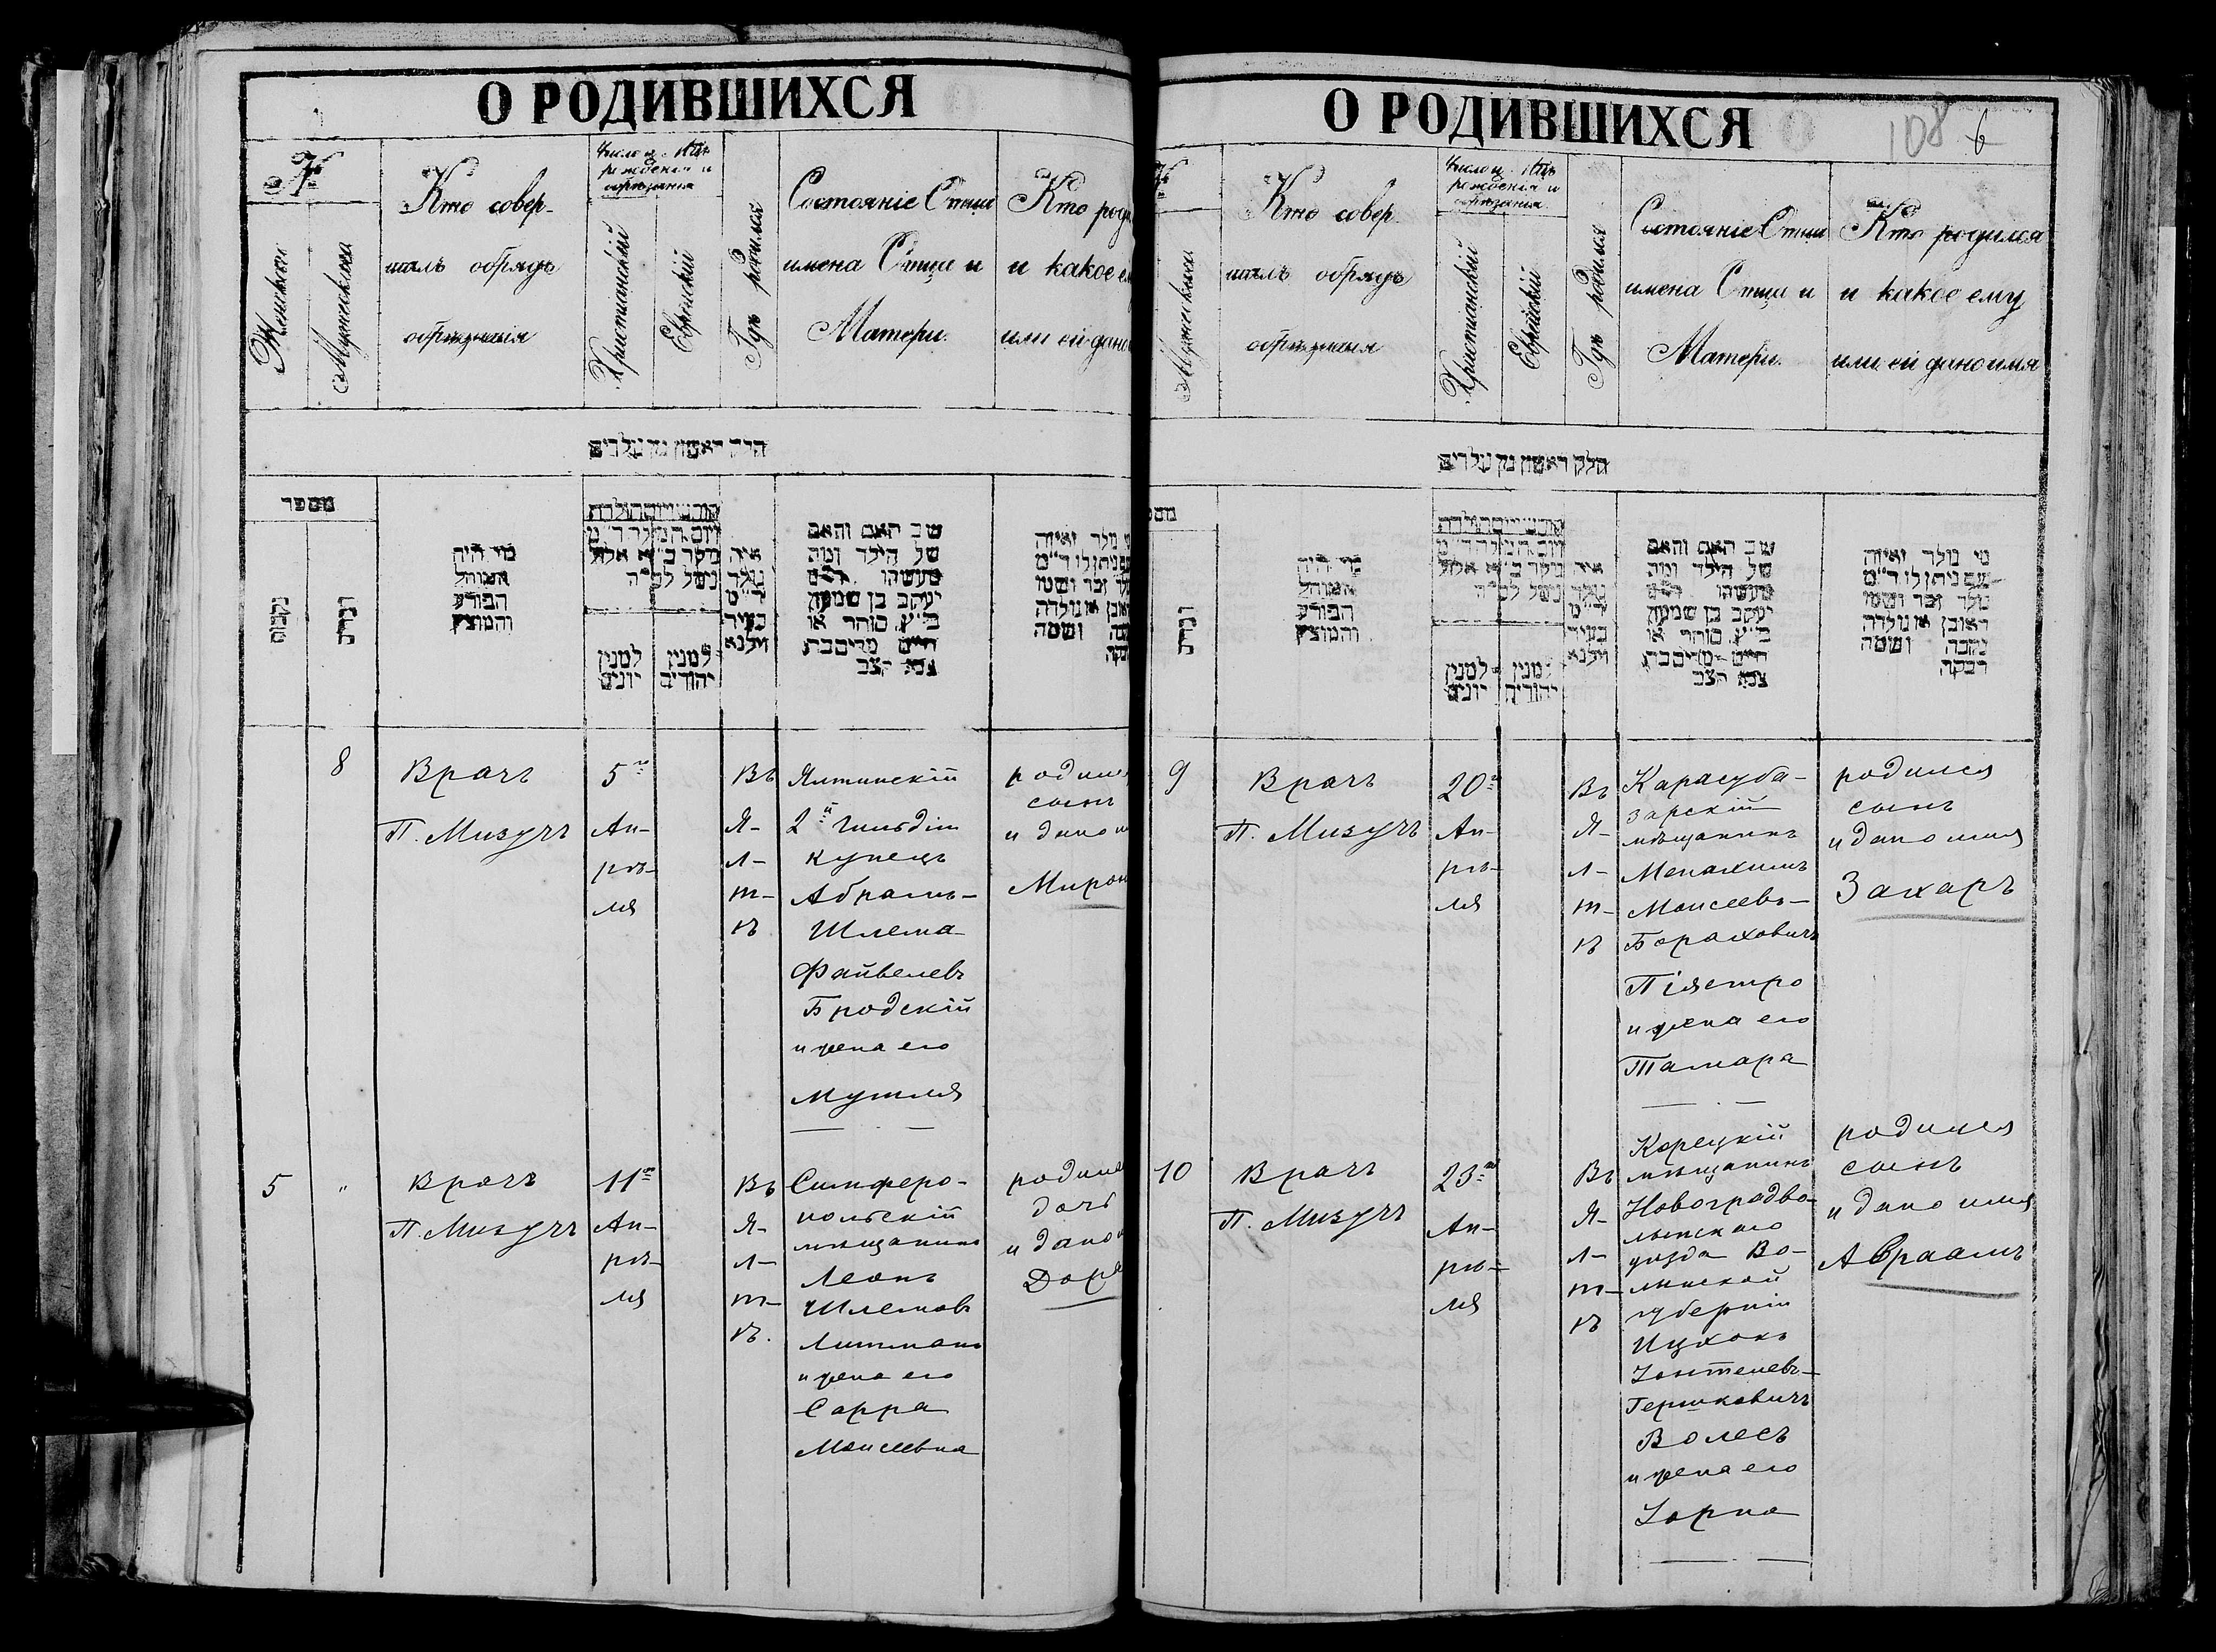 О РОДИВШИХСЯ
№
Женскій
Мужескій
Кто совер-
шилъ обрядъ
обрѣзанія
Число и мѣс.
рожденія и
обрѣзанія
Христіанскій
Еврейскій
Гдѣ родился
Состояніе Отца
имена Отца и
Матери.
Кто роди
и какое ем
или ей дано
חלק ראשון מן נולדים
מספר
נקבות
זכרים
מי היה
המוהל
הפורע
והמוצץ
למנין
יונים
למנין
יהודים
איה
נולד
ד״מ
בעיר
ווילנא
שם האב והאם
של הילד ומה
מעשהו ד״מ
יעקב בן שמעון
8
Врачъ
П. Мизучъ
5го
Ап-
рѣ-
ля
Въ
Я-
л-
т-
ѣ
Ялтинскій
2й гильдіи
купецъ
Абрамъ-
Шлема
Файвелевъ
Бродскій
и жена его
Мутля
родилс
сынъ
и дано и
Мирон
5
"
Врачъ
П. Мизучъ
11го
Ап-
рѣ-
ля
Въ
Я-
л-
т-
ѣ.
Симферо-
польскій
мѣщанинъ
Леонъ
Шлемовъ
Литманъ
и жена его
Сарра
Моисеевна
родила
дочь
и дано и
Дора
О РОДИВШИХСЯ
108
6
№
Мужескій
Кто совер-
шилъ обрядъ
обрѣзанія
Число и мѣс.
рожденія и
обрѣзанія
Христіанскій
Еврейскій
Гдѣ родился
Состояніе Отца
имена Отца и
Матери.
Кто родился
и какое ему
или ей дано имя
חלק ראשון מן נולדים
זכרים
מי היה
המוהל
הפורע
והמוצץ
למנין
יונים
למנין
יהודים
איה
נולד
ד״מ
בעיר
ווילנא
שם האב והאם
של הילד ומה
מעשהו ד״מ
יעקב בן שמעון
מי נולד ואיזה
שם ניתן לו ד״מ
נולד זכר ושמו
ראובן או נולדה
נקבה ושמה
רבקה
9
Врачъ
П. Мизучъ
20го
Ап-
рѣ-
ля
Въ
Я-
л-
т-
ѣ
Карасуба-
зарскій
мѣщанинъ
Менахимъ
Моисеевъ-
Бораховичъ
Піястро
и жена его
Тамара
родился
сынъ
и дано имя
Захаръ
10
Врачъ
П. Мизучъ
23го
Ап-
рѣ-
ля
Въ
Я-
л-
т-
ѣ
Корецкій
мѣщанинъ
Новоградво-
лынскаго
уѣзда Во-
лынской
губерніи
Ицхокъ
Зонтелевъ-
Гершковичъ
Волесъ
и жена его
родился
сынъ
и дано имя
Авраамъ